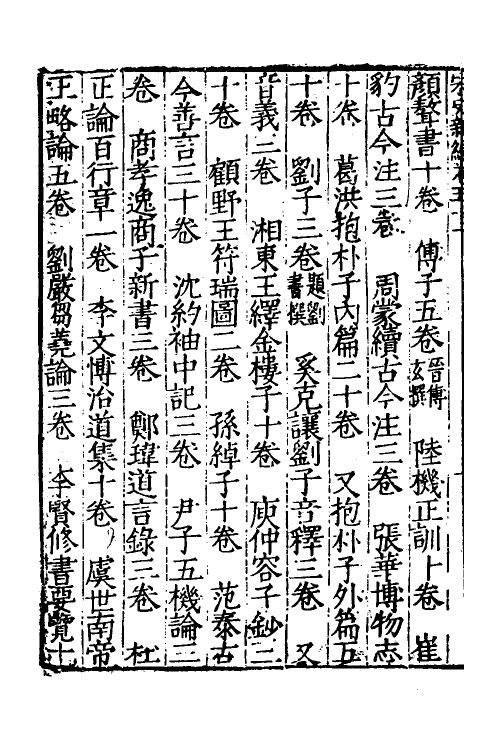 顏鼇書十卷　傅子五卷晉傅玄撰　陸機正訓十卷　崔
豹古今注三卷　周蒙續古今注三卷　張華博物志
十卷　葛洪抱朴子內篇二十卷　又抱朴子外篇五
十卷　劉子三卷題劉晝撰　奚克讓劉子音釋三卷　又
音義三卷　湘東王繹金樓子十卷　庾仲容子鈔三
十卷　顧野王符瑞圖二卷　孫綽子十卷　范泰古
今善言三十卷　沈約袖中記三卷　尹子五機論三
卷　商孝逸商子新書三卷　鄭瑋道言錄三卷　杜
正論百行章一卷　李文博治道集十卷　虞世南帝
王略論五卷　劉嚴芻蕘論三卷　李賢修書要覽十